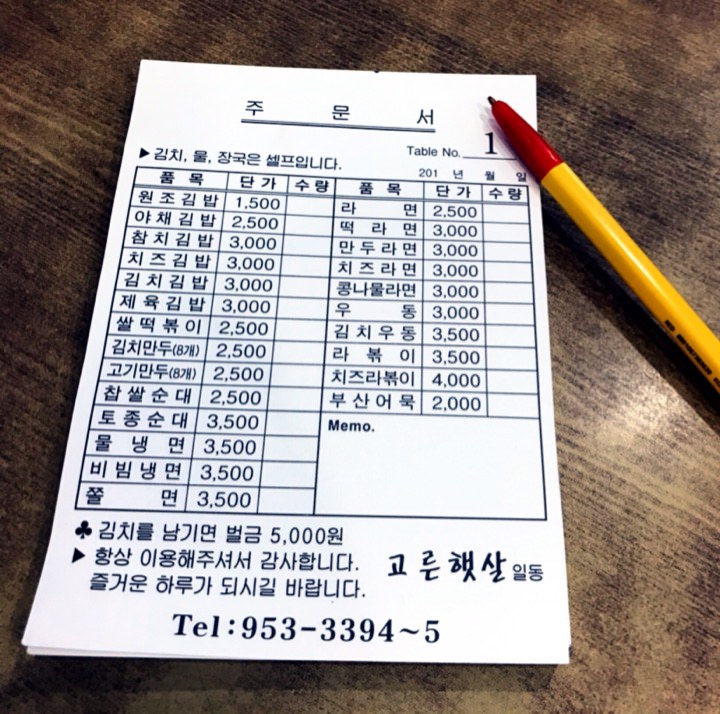 주 문 서
Table No. 1
▶김치, 물, 장국은 셀프입니다.
201 년 월 일
품 목 단 가 수 량 품 목 단 가 수 량
원조김밥 1,500 라 면 2,500
야채김밥 2,500 떡 라 면 3,000
참치김밥 3,000 만두라면 3,000
치즈김밥 3,000 치즈라면 3,000
김치김밥 3,000 콩나물라면 3,000
제육김밥 3,000 우 동 3,000
쌀떡볶이 2,500 김치우동 3,500
김치만두(8개) 2,500 라 볶 이 3,500
고기만두(8개) 2,500 치즈라볶이 4,000
찹쌀순대 2,500 부산어묵 2,000
토종순대 3,500 Memo.
물 냉 면 3,500
비빔냉면 3,500
쫄 면 3,500
♣ 김치를 남기면 벌금 5,000원
▶ 항상 이용해주셔서 감사합니다.
즐거운 하루가 되시길 바랍니다.
고른햇살 일동
Tel:953-3394~5